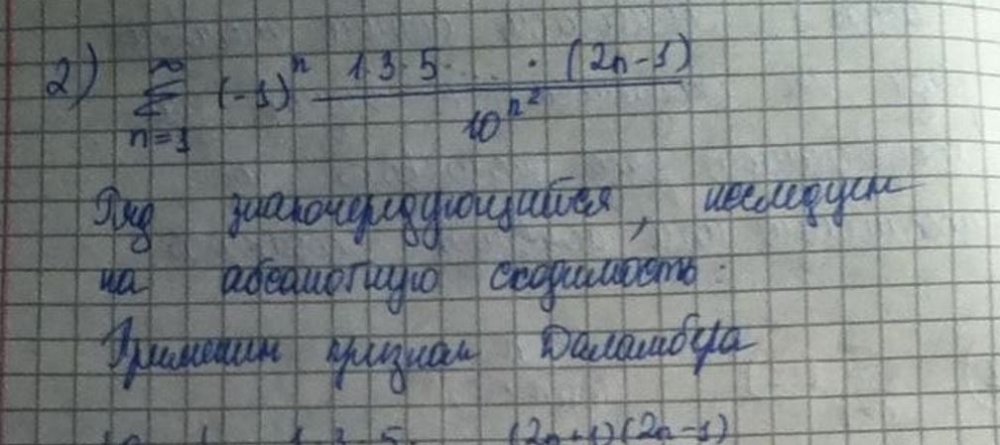 2) ∞ ∑ n=1 (-1)^n (1·3·5· ... · (2n-1)) / 10^{n^2}
Ряд знакочередующийся, исследуем
на абсолютную сходимость:
Применим признак Даламбера
1·3·5 (2n+1)(2n-1)